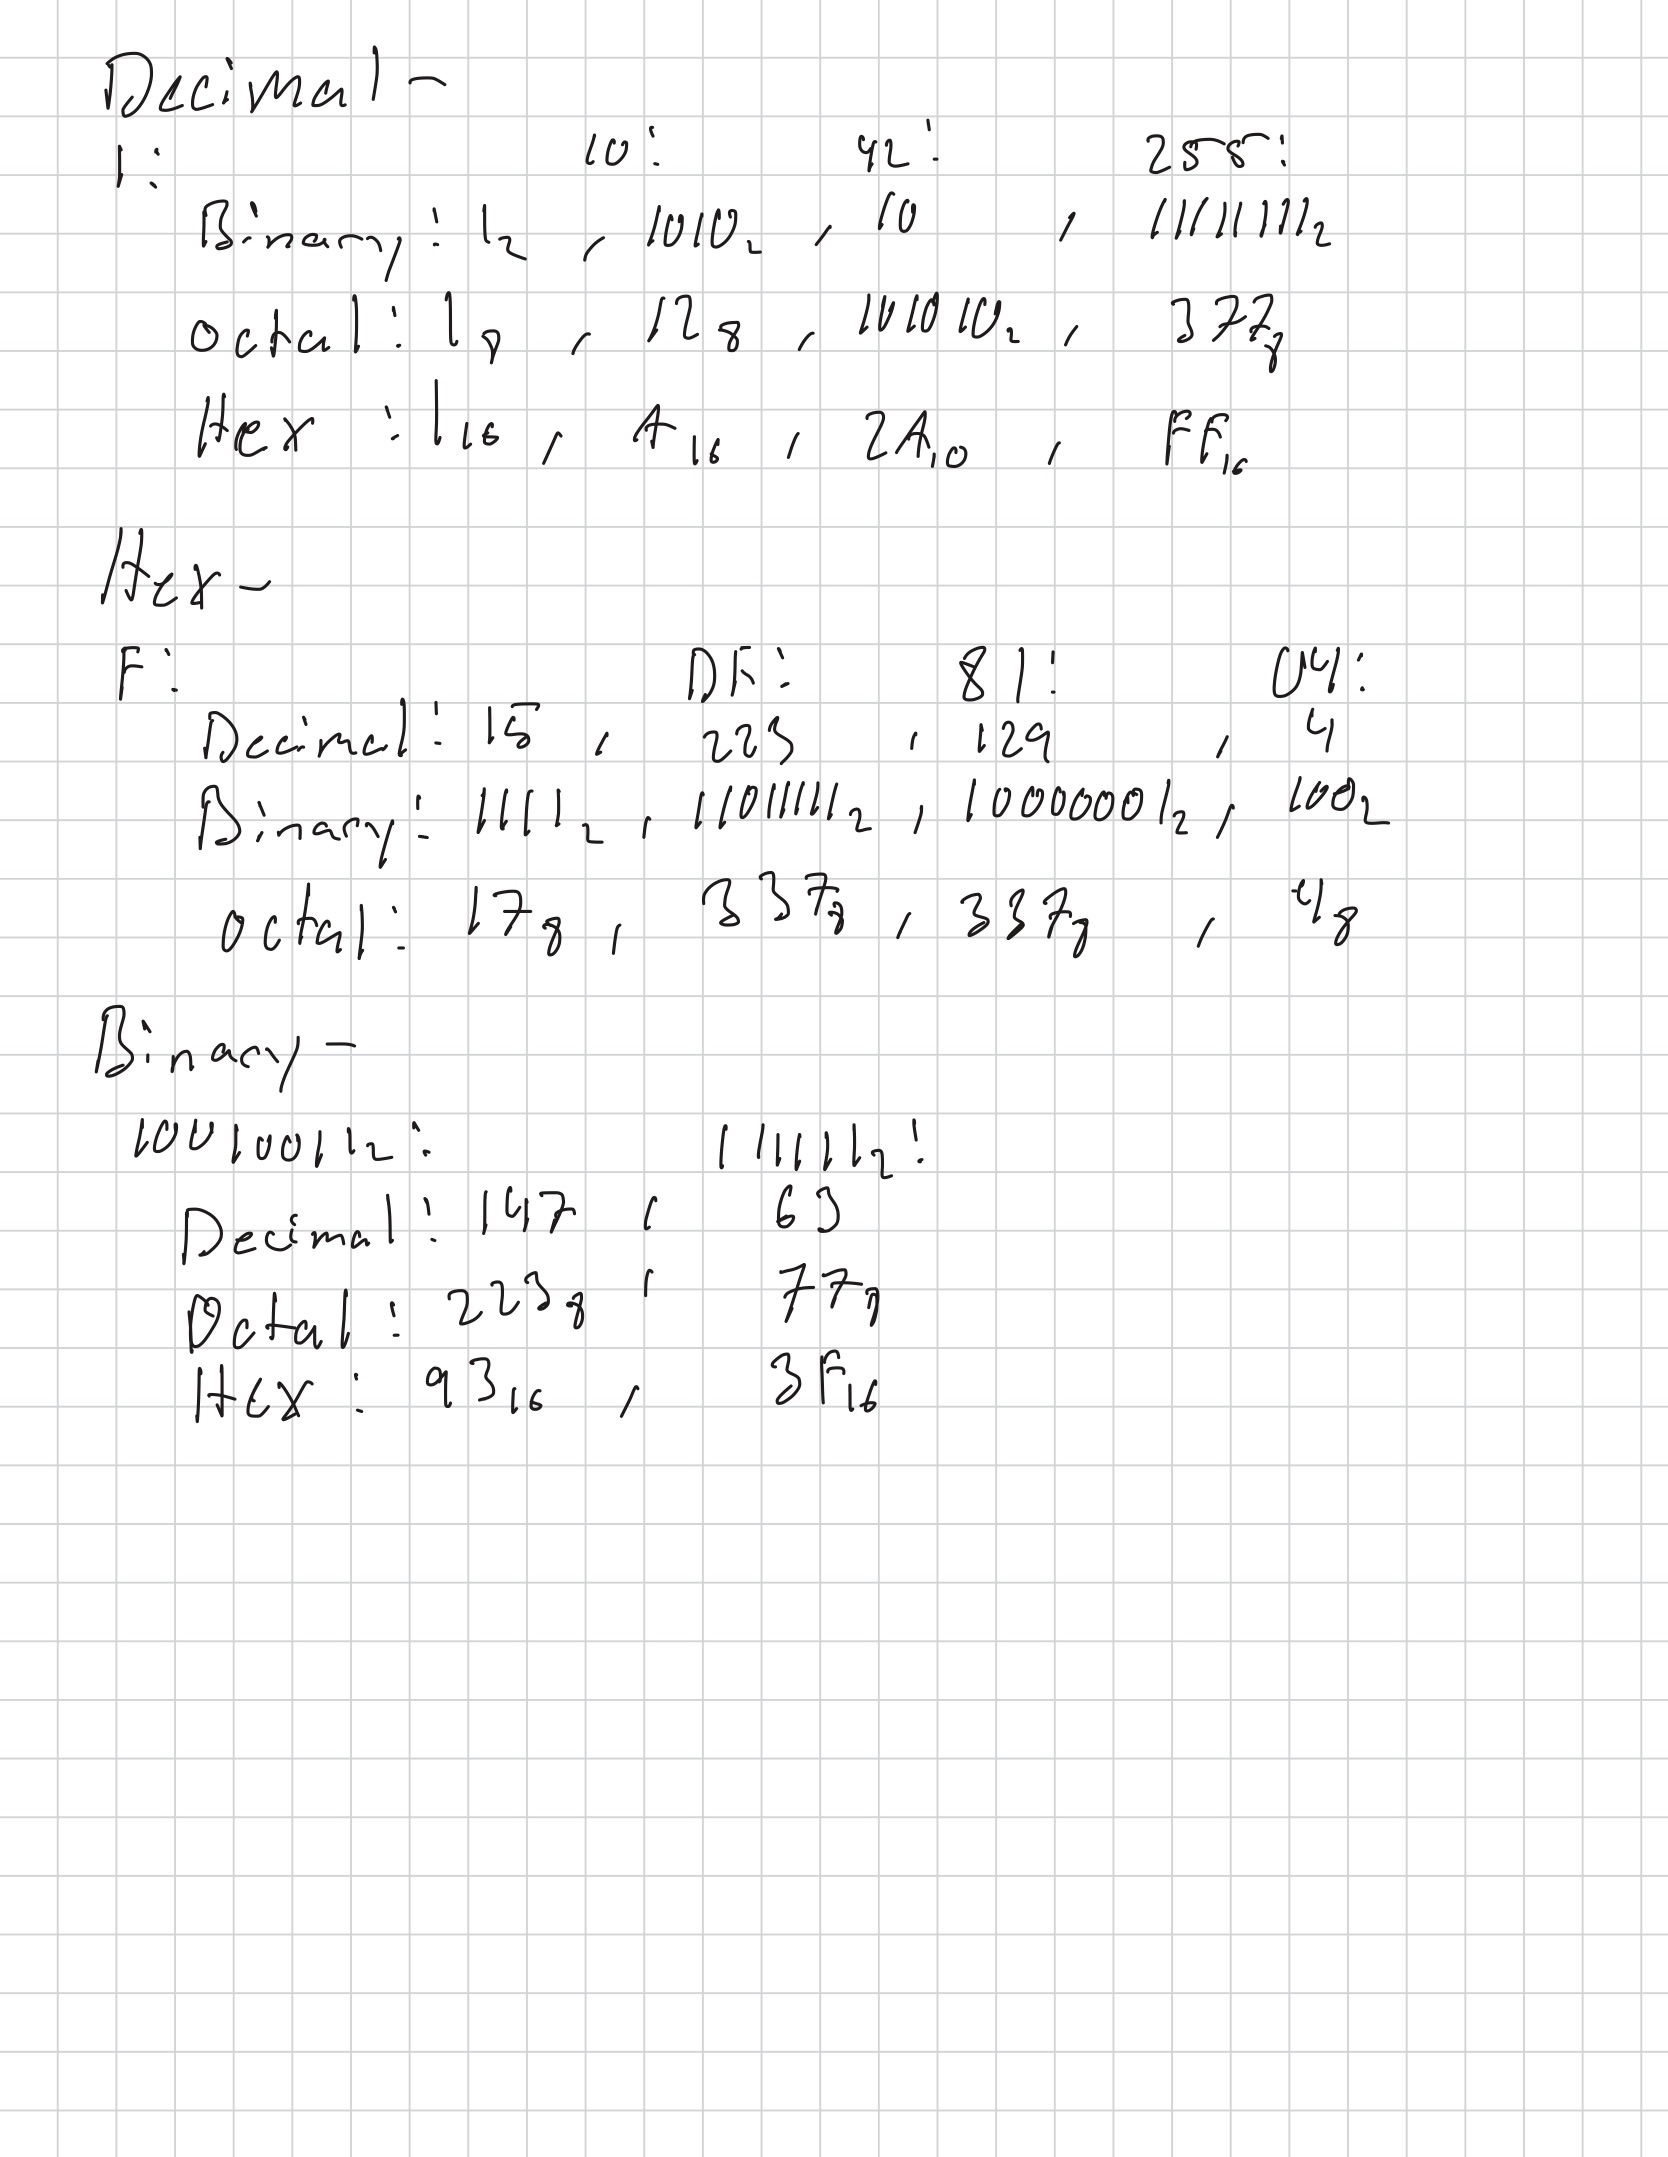 Decimal -
1: 10: 42: 255:
Binary: 1₂ , 1010₂ , 10 , 11111111₂
octal: 1₈ , 12₈ , 101010₂ , 377₈
Hex : 1₁₆ , A₁₆ , 2A₁₀ , FF₁₆
Hex -
F: DF: 81: 04:
Decimal: 15 , 223 , 129 , 4
Binary: 1111₂ , 11011111₂ , 10000001₂ , 100₂
octal: 17₈ , 337₈ , 337₈ , 4₈
Binary -
10010011₂: 111111₂:
Decimal: 147 , 63
Octal: 223₈ , 77₈
Hex : 93₁₆ , 3F₁₆